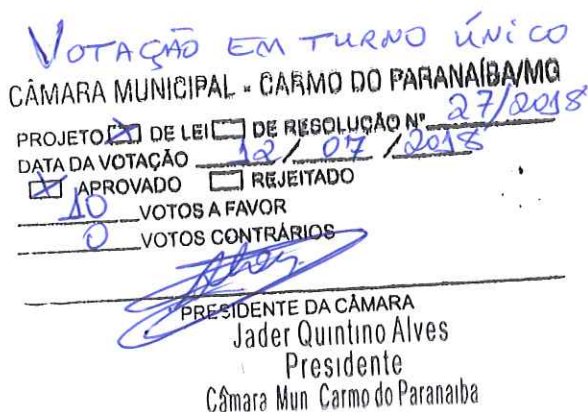 VOTAÇÃO EM TURNO ÚNICO
CÂMARA MUNICIPAL - CARMO DO PARANAÍBA/MG
PROJETO [X] DE LEI [ ] DE RESOLUÇÃO Nº 27/2018
DATA DA VOTAÇÃO 12 / 07 / 2018
[X] APROVADO [ ] REJEITADO
10 VOTOS A FAVOR
0 VOTOS CONTRÁRIOS
PRESIDENTE DA CÂMARA
Jader Quintino Alves
Presidente
Câmara Mun Carmo do Paranaiba